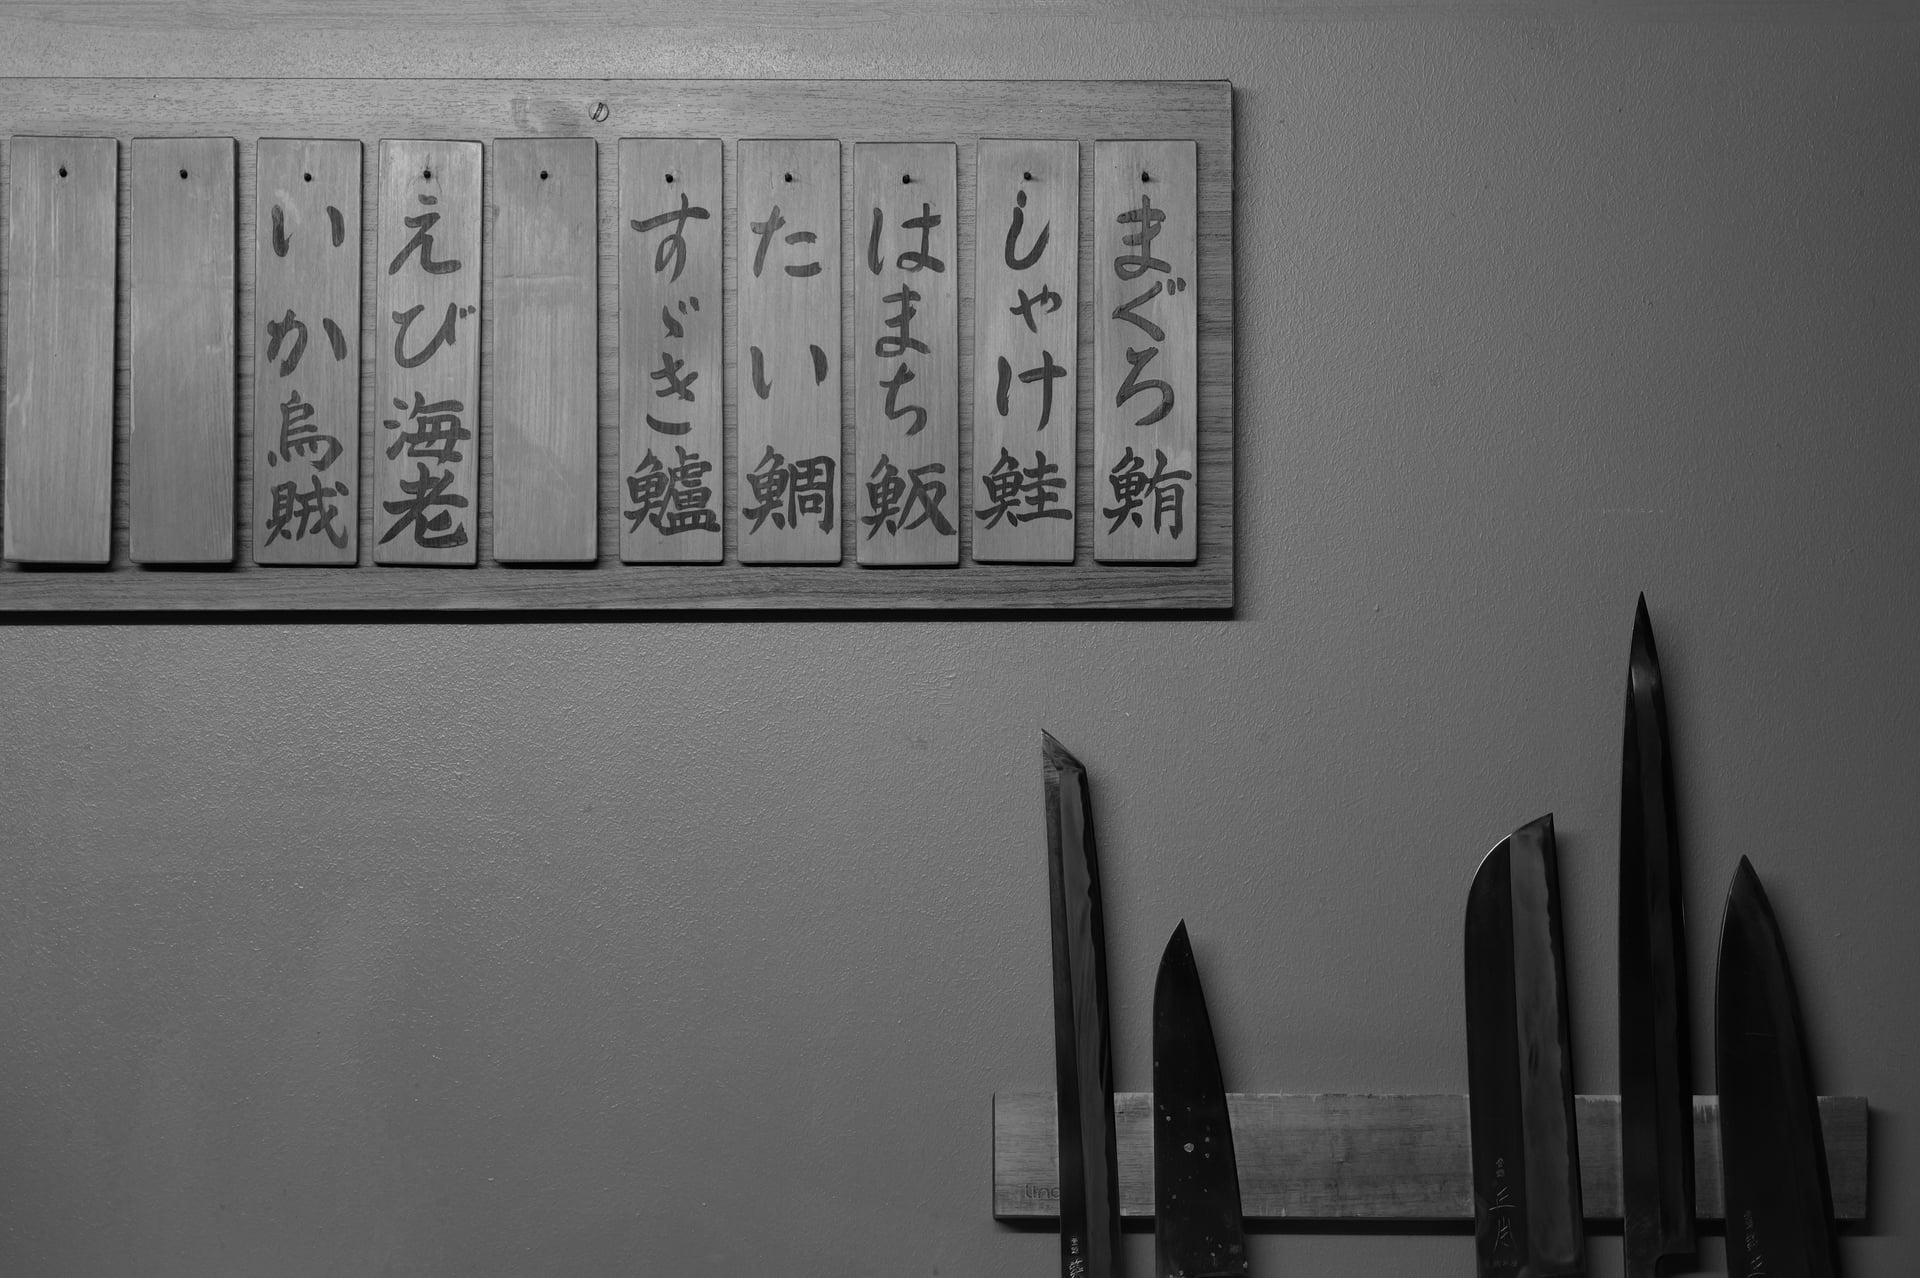 まぐろ鮪
しゃけ鮭
はまち魬
たい鯛
すゞき鱸
えび海老
いか烏賊